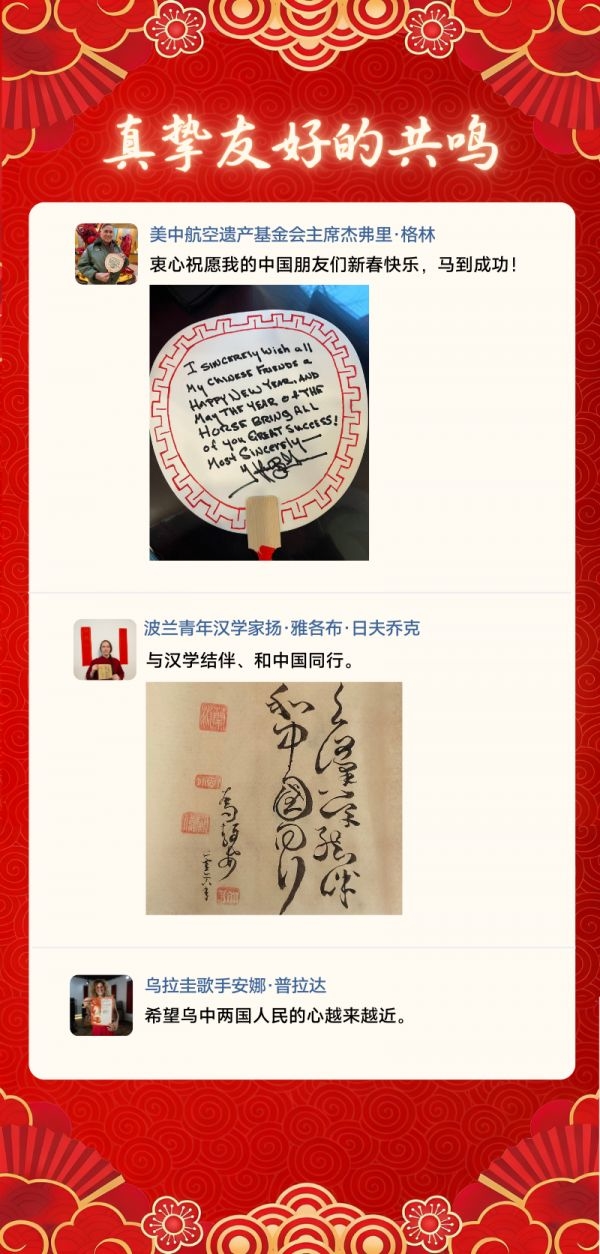 真挚友好的共鸣
美中航空遗产基金会主席杰弗里·格林
衷心祝愿我的中国朋友们新春快乐，马到成功！
I SINCERELY WISH all
My CHINESE FRIENDS a
HAPPY NEW YEAR, AND
May THE YEAR of THE
HORSE BRING ALL
of you GREAT SUCCESS!
Most SINCERELY—
波兰青年汉学家扬·雅各布·日夫乔克
与汉学结伴、和中国同行。
与漢学结伴
和中国同行
二〇二六年
乌拉圭歌手安娜·普拉达
希望乌中两国人民的心越来越近。